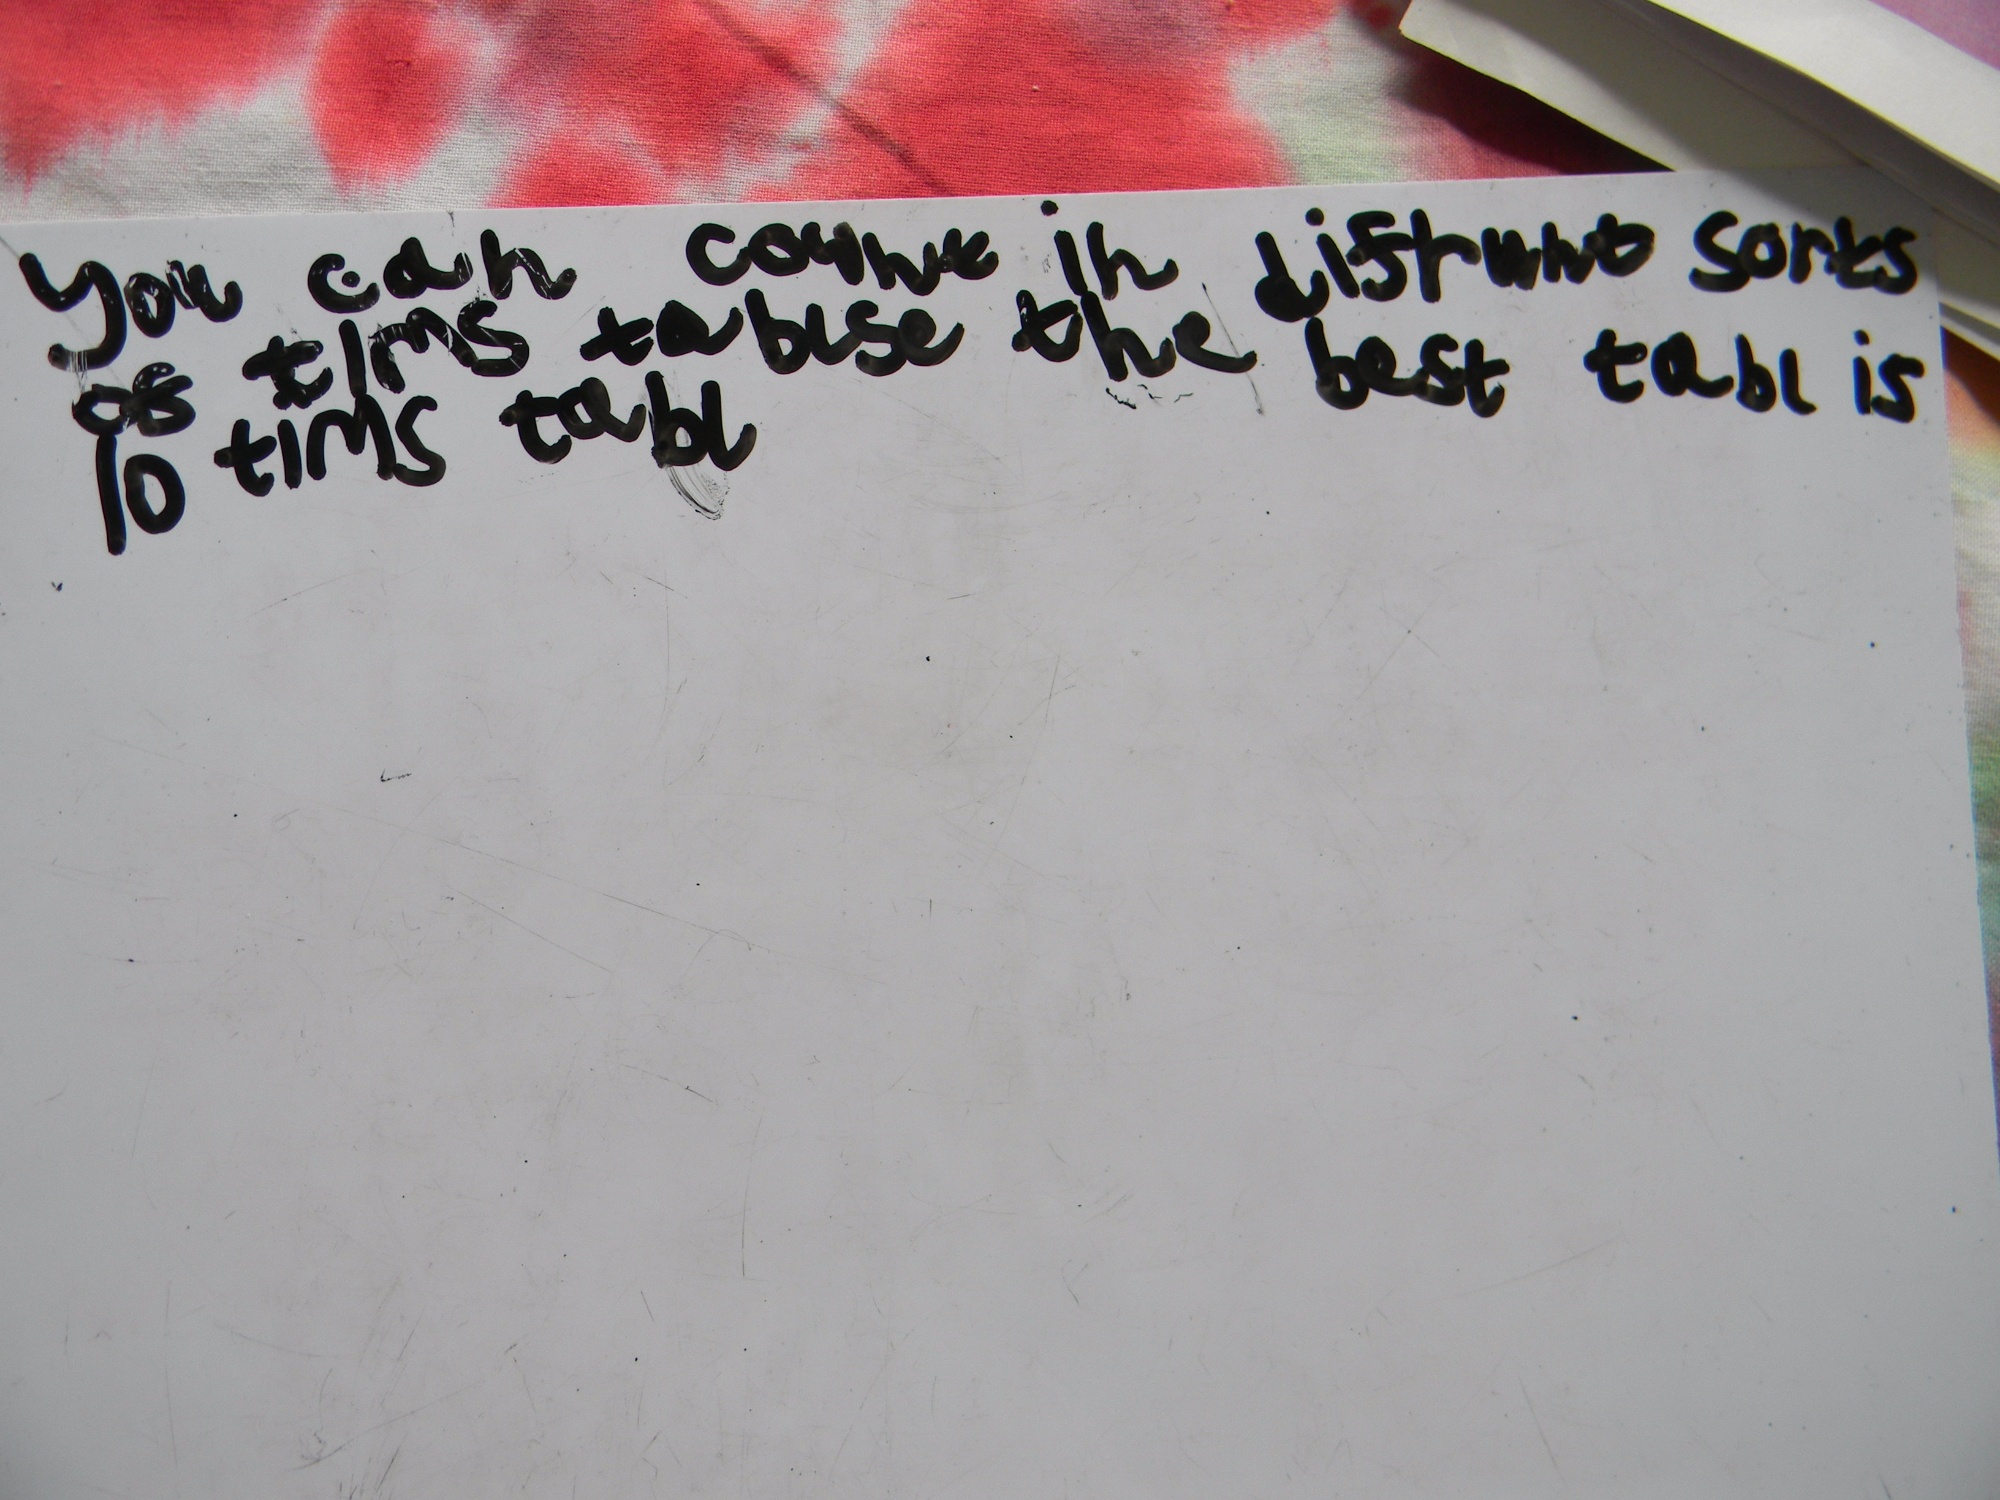 you can counte in difrunt sorts
of tims tablse the best tabl is
10 tims tabl